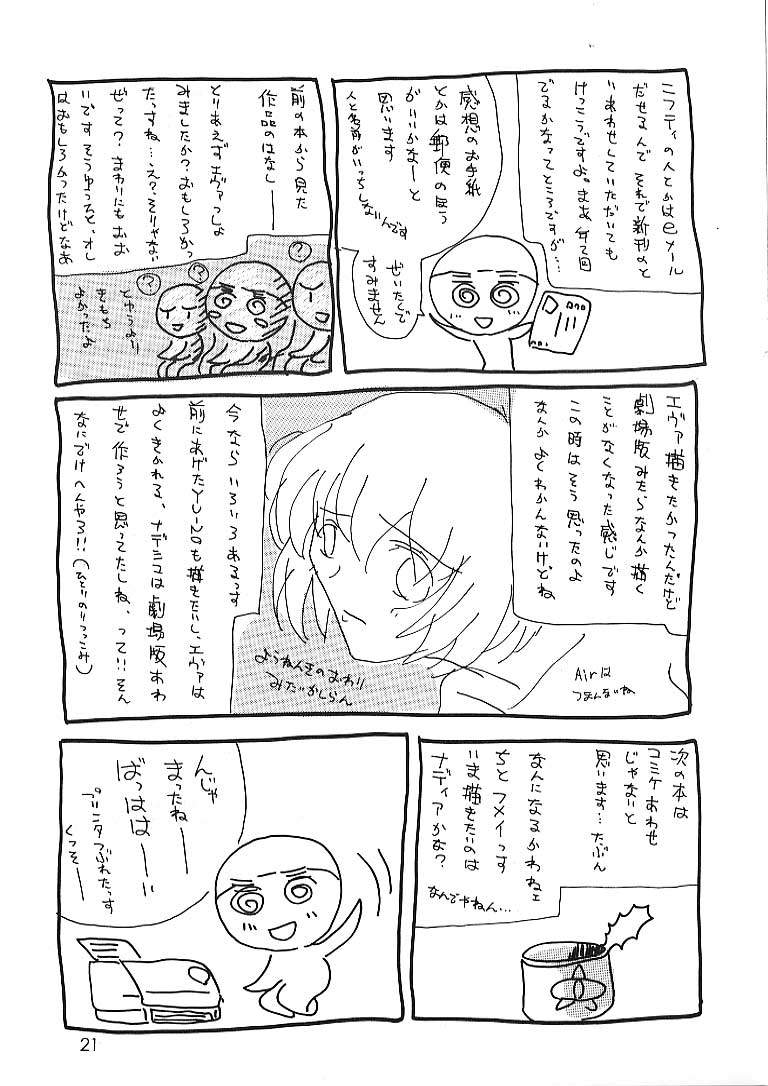 ニフティの人とかはeメール
だせるんで それで新刊のと
いあわせしていただいても
けっこうですよ。まあ
でるかなってところですが…
感想のお手紙
とかは郵便のほう
がいいかなーと
思います
人と名前がいっちしないんです
ぜいたくで
すみません
前の本から見た
作品のはなし——
とりあえずエヴァっしょ
みましたか?おもしろかっ
たっすね…え?そりゃない
ぜって?まわりにもむず
いです そうゆうひと、オレ
はおもしろかったけどなあ
とゆうより
きもち
よかったよ
?
?
?
エヴァ描きたかったんだけど
劇場版みたらなんか描く
ことがなくなった感じです
この時はそう思ったのよ
なんかよくわかんないけどね
Airは
つまんないね
ようねんきのおわり
みたいかしらん
今ならいろいろあるっす
前にあげたYU-NOも描きたいし、エヴァは
よくきかれる、ナデシコは劇場版あわ
せで作ろうと思ってたしね、って!!そん
なにでけへんやろ!!(ひとりのりつっこみ)
次の本は
コミケあわせ
じゃないと
思います…たぶん
なんになるかわねェ
ちとフメイっす
いま描きたいのは
ナディアかな?
なんでやねん…
んじゃ
まったねー
ばっはは——い
プリンタつぶれたっす
くっそー
21